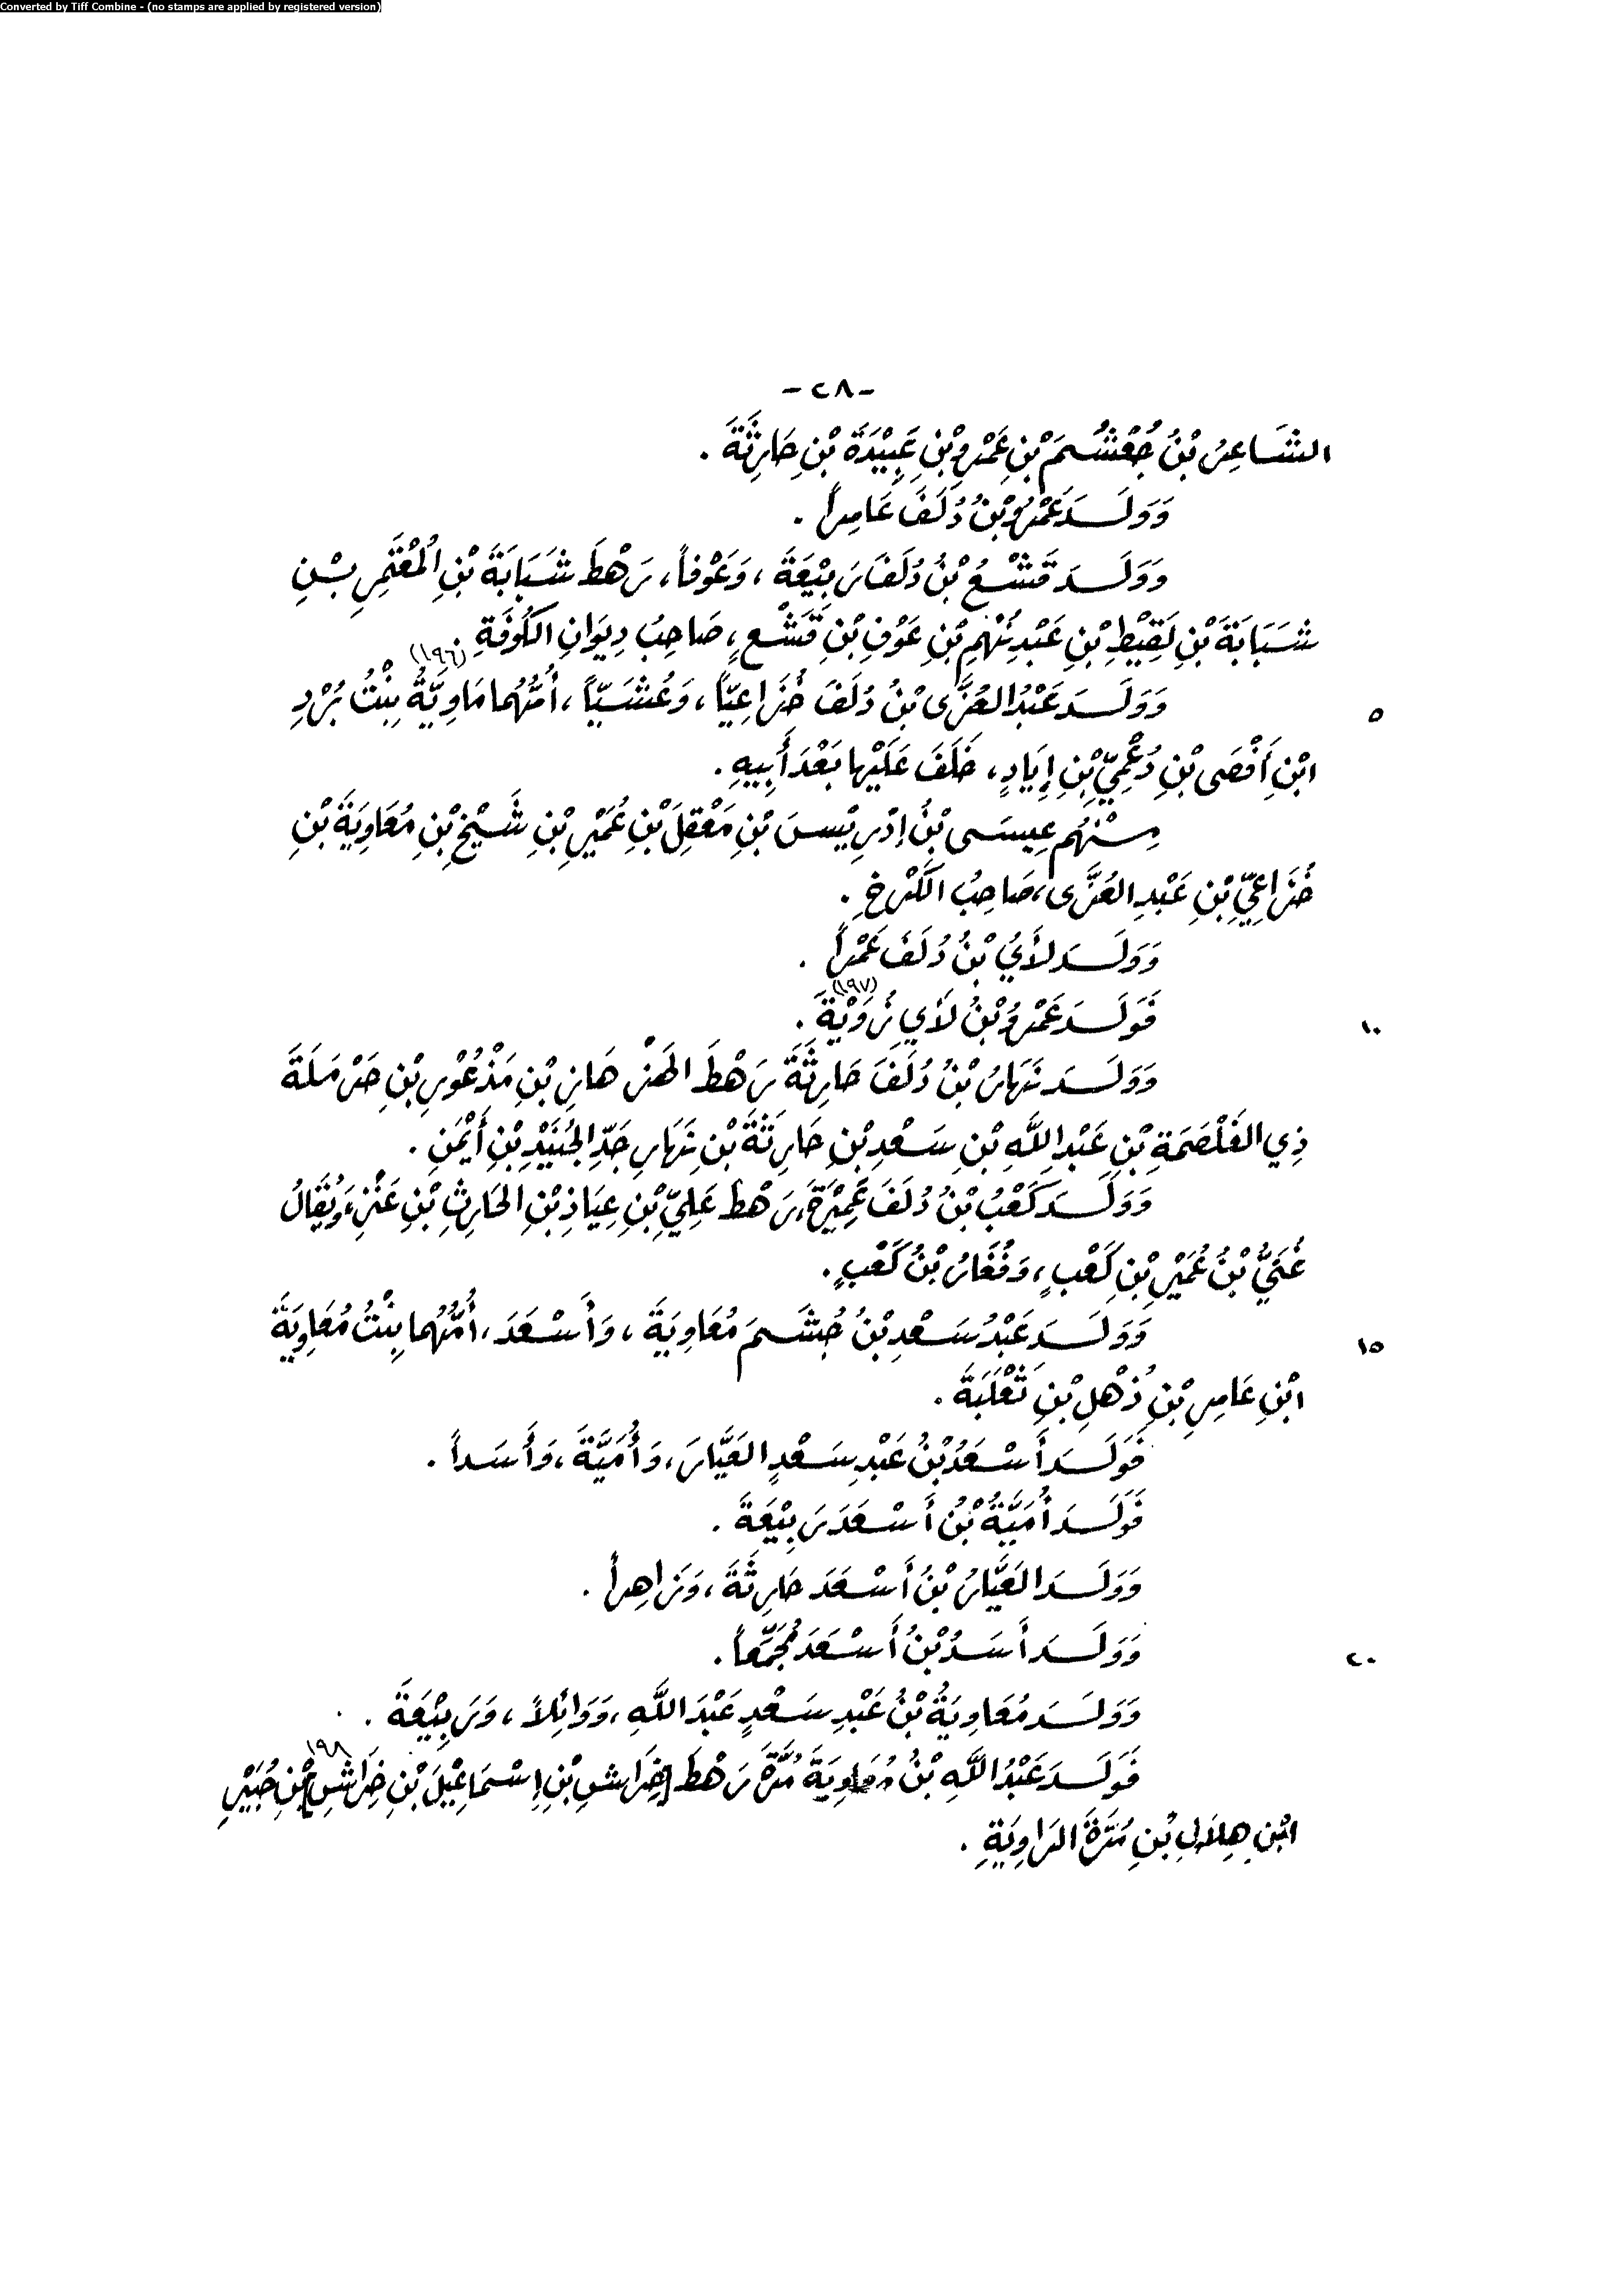 Converted by Tiff Combine - (no stamps are applied by registered version)
-٢٨-
الشَّاعِرُ بْنُ جُعْشُمَ بْنِ عَمْرِو بْنِ عَبِيْدَةَ بْنِ حَارِثَةَ .
وَوَلَدَ عَمْرُو بْنُ دُلَفَ عَامِراً .
وَوَلَدَ قَشْعُ بْنُ دُلَفَ رَبِيْعَةَ ، وَعَوْفاً ، رَهْطَ شَبَابَةَ بْنِ الْمُعْتَمِرِ بْنِ
شَبَابَةَ بْنِ لَقِيْطِ بْنِ عَبْدِ نُهْمِ بْنِ عَوْفِ بْنِ قَشْعٍ ، صَاحِبُ دِيَوَانِ الكُوفَةِ .
٥ وَوَلَدَ عَبْدُ العُزَّى بْنُ دُلَفَ خُزَاعِيّاً ، وَعُشَيّاً ، أُمُّهُما مَاوِيَّةُ (١٩٦) بِنْتُ بُرْدِ
ابْنِ أَفْصَى بْنِ دُعْمِيِّ بْنِ إِيَادٍ ، خَلَفَ عَلَيْها بَعْدَ أَبِيهِ .
مِنْهُم عِيسَى بْنُ إدْرِيْسَ بْنِ مَعْقِلَ بْنِ عُمَيْرِ بْنِ شَيْخِ بْنِ مُعَاوِيَةَ بْنِ
خُزَاعِيِّ بْنِ عَبْدِ العُزَّى ، صَاحِبُ الكَرْخِ .
وَوَلَدَ لأَيُ بْنُ دُلَفَ عَمْراً .
١٠ فَوَلَدَ عَمْرُو بْنُ لَأيِ زُوَيَّةَ (١٩٧) .
وَوَلَدَ نَهَارُ بْنُ دُلَفَ حَارِثَةَ رَهْطَ الهَزْهَازِ بْنِ مَذْعُوْرِ بْنِ حَرْمَلَةَ
ذِي الغَلْصَمَةِ بْنِ عَبْدِ اللَّهِ بْنِ سَعْدِ بْنِ حَارِثَةَ بْنِ نَهَارِ جَدِّ الجُنَيْدِ بْنِ أَيْمَنِ .
وَوَلَدَ كَعْبُ بْنُ دُلَفَ عَمِيْرَةَ ، رَهْطَ عَلِيِّ بْنِ عِيَاذِ بْنِ الحَارِثِ بْنِ عَنْزِ ، وَيُقَالُ
عُنَيُّ بْنُ عُمَيْرِ بْنِ كَعْبٍ ، وَفُغَارُ بْنُ كَعْبٍ .
١٥ وَوَلَدَ عَبْدُ سَعْدِ بْنُ جُشَمَ مُعَاوِيَةَ ، وَأَسْعَدَ ، أُمُّهُما بِنْتُ مُعَاوِيَةَ
ابْنِ عَامِرِ بْنِ ذُهْلِ بْنِ ثَعْلَبَةَ .
فَوَلَدَ أَسْعَدُ بْنُ عَبْدِ سَعْدٍ العَيَّارَ ، وَأُمَيَّةَ ، وَأَسَداً .
فَوَلَدَ أُمَيَّةُ بْنُ أَسْعَدَ رَبِيْعَةَ .
وَوَلَدَ العَيَّارُ بْنُ أَسْعَدَ حَارِثَةَ ، وَزَاهِراً .
٢٠ وَوَلَدَ أَسَدُ بْنُ أَسْعَدَ مُجَمِّعاً .
وَوَلَدَ مُعَاوِيَةُ بْنُ عَبْدِ سَعْدٍ عَبْدَ اللَّهِ ، وَوَائِلاً ، وَرَبِيْعَةَ .
فَوَلَدَ عَبْدُ اللَّهِ بْنُ مُعَاوِيَةَ مُرَّةَ رَهْطَ [خِرَاشِ بْنِ إِسْمَاعِيْلَ بْنِ خِرَاشِ] ١٩٨ بْنِ جُبَيْرِ
ابْنِ هِلاَلِ بْنِ مُرَّةَ الرَاوِيَةِ .